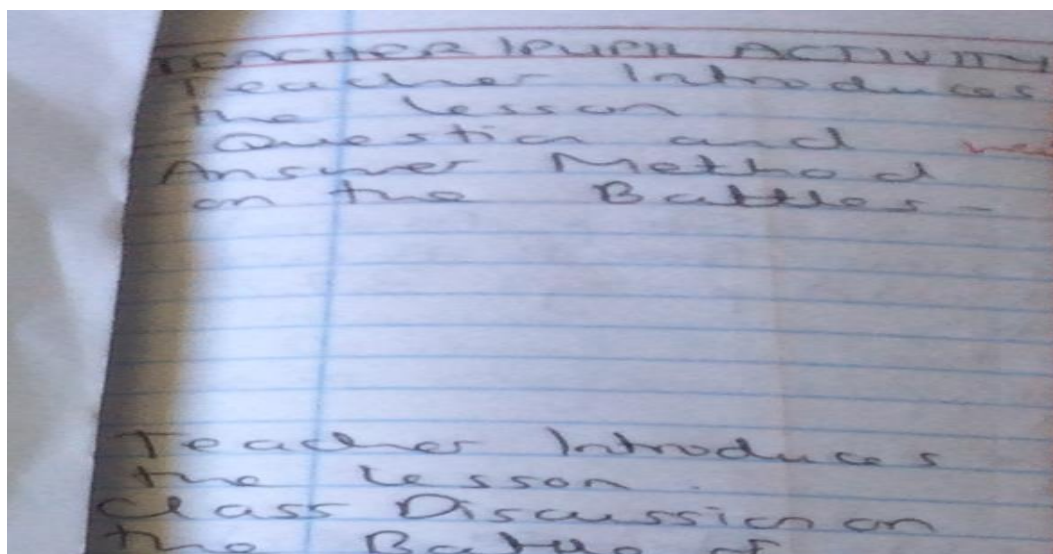 TEACHER / PUPIL ACTIVITY
Teacher Introduces
the Lesson.
Question and
Answer Method
on the Battles -
Teacher Introduces
the Lesson.
Class Discussion on
the Battle of